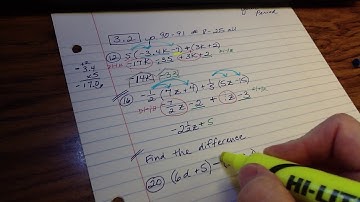 Period
3.2 pp. 90-91 # 8-25 all
(12) 5(-3.4k-7)+(3k+2)
-17k -35 +3k+2
-14k -33
+2
-3.4
x5
-17.0
(16) -1/2(7z+4)+1/5(5z-15)
-7/2z -2 + 1z -3
-2 1/2z + 5
Find the difference
(20) (6d+5)-
HI-LITER